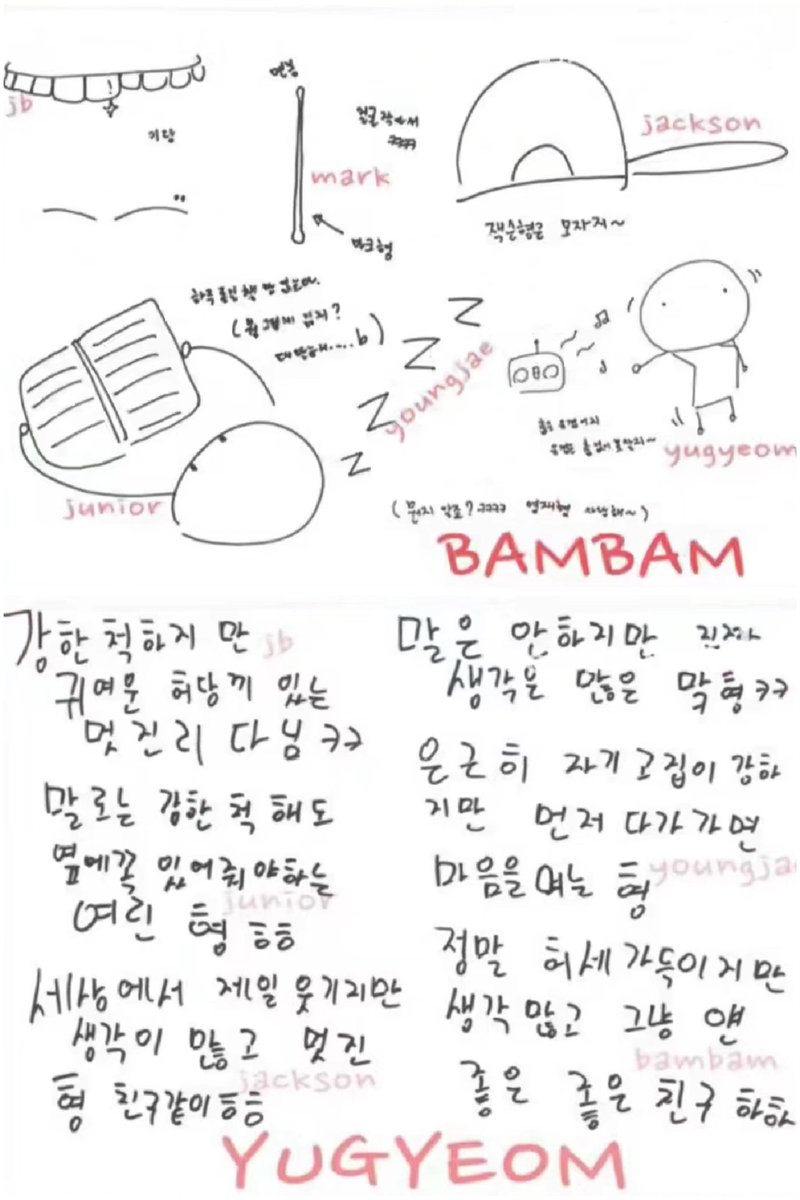 jb
기당
면봉
mark
마크형
얼굴 작아서
ㅋㅋㅋㅋ
jackson
잭슨형은 모자지~
하루 종일 책
(
대단해....b)
junior
z z z z
youngjae
(뭔지 알죠? ㅋㅋㅋㅋ 영재형 사랑해~)
yugyeom
BAMBAM
강한척하지 만
jb
귀여운 허당끼 있는
멋진리 다님 ㅋㅋ
말로는 강한 척 해도
옆에꼭 있어줘야하는
junior
여린 형 ㅎㅎ
세상에서 제일 웃기지만
생각이 많고 멋진
jackson
형 친구같이 ㅎㅎ
말은 안하지만 진짜
생각은 많은 막형 ㅋㅋ
은근히 자기 고집이 강하
지만 먼저 다가가면
마음을 여는 형
youngja
정말 허세가득이지만
생각 많고 그냥 얜
bambam
좋은 좋은 친구 하하
YUGYEOM